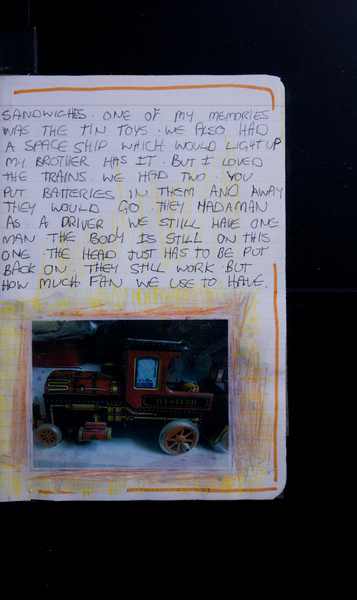 SANDWICHES. ONE OF MY MEMORIES
WAS THE TIN TOYS. WE ALSO HAD
A SPACE SHIP WHICH WOULD LIGHT UP
MY BROTHER HAS IT. BUT I LOVED
THE TRAINS. WE HAD TWO. YOU
PUT BATTERIES IN THEM AND AWAY
THEY WOULD GO. THEY HADAMAN
AS A DRIVER, WE STILL HAVE ONE
MAN THE BODY IS STILL ON THIS
ONE. THE HEAD JUST HAS TO BE PUT
BACK ON. THEY STILL WORK. BUT
HOW MUCH FAN WE USE TO HAVE.
WESTERN